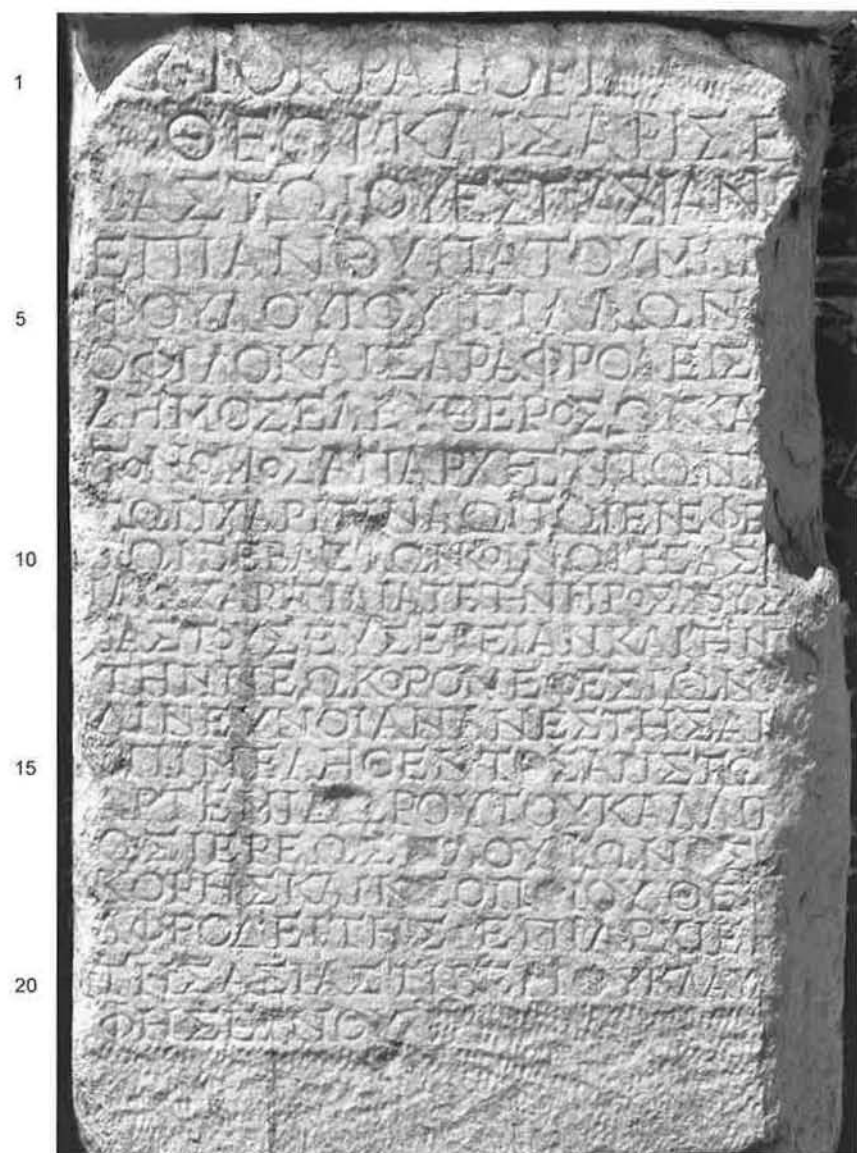 ΟΚΡΑΤΟΡΙ
ΘΕΩΙ ΚΑΙΣΑΡΙ ΣΕ
ΒΑΣΤΩΙ ΟΥΕΣΠΑΣΙΑΝΩ
ΕΠΙ ΑΝΘΥΠΑΤΟΥ ΜΑΡ
ΦΟΥΛΟΥΙΟΥ ΓΙΛΛΩΝ
Ο ΦΙΛΟΚΑΙΣΑΡ ΑΦΡΟΔΕΙΣ
ΔΗΜΟΣ ΕΛΕΥΘΕΡΟΣ ΩΝ ΚΑ
ΤΟΝΟΜΟΣ ΑΠ ΑΡΧΗΣ ΤΗΙ ΤΩΝ
ΤΩΝ ΧΑΡΙΤΙ ΝΑΩΙ ΤΩΙ ΕΝ ΕΦΕ
ΣΩΙ ΣΕΒΑΣΤΩΝ ΚΟΙΝΩΙ ΤΗΣ ΑΣΙ
ΧΑΡΙΤΙ ΔΙΑ ΤΕ ΤΗΝ ΠΡΟΣ ΤΟΥΣ
ΒΑΣΤΟΥΣ ΕΥΣΕΒΕΙΑΝ ΚΑΙ ΤΗΝ Π
ΤΗΝ ΝΕΩΚΟΡΟΝ ΕΦΕΣΙΩΝ
ΛΙΝ ΕΥΝΟΙΑΝ ΑΝΕΣΤΗΣΑΝ
ΕΠΙΜΕΛΗΘΕΝΤΟΣ ΑΡΙΣΤΩ
ΑΡΤΕΜΙΔΩΡΟΥ ΤΟΥ ΚΑΛΛΙ
ΟΣ ΙΕΡΕΩΣ ΠΛΟΥΤΩΝΟΣ
ΚΟΡΗΣ ΚΑΙ ΝΕΟΠΟΙΟΥ ΘΕ
ΑΦΡΟΔΕΙΤΗΣ ΕΠΙ ΑΡΧΙΕ
ΤΗΣ ΑΣΙΑΣ ΤΙΒΕΡΙΟΥ ΚΛΑΥ
ΦΗΣΕΙΝΟΥ
1
5
10
15
20